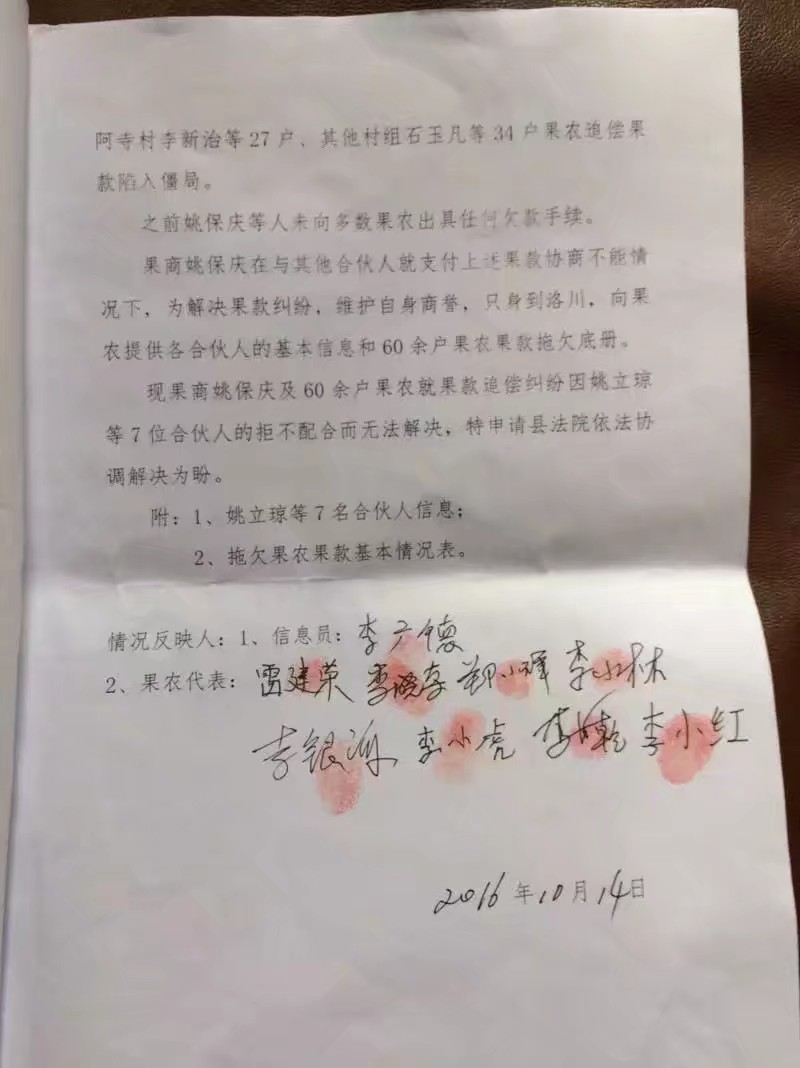 阿寺村李新治等27户、其他村组石玉凡等34户果农追偿果
款陷入僵局。
之前姚保庆等人未向多数果农出具任何欠款手续。
果商姚保庆在与其他合伙人就支付上述果款协商不能情
况下，为解决果款纠纷，维护自身商誉，只身到洛川，向果
农提供各合伙人的基本信息和60余户果农果款拖欠底册。
现果商姚保庆及60余户果农就果款追偿纠纷因姚立琼
等7位合伙人的拒不配合而无法解决，特申请县法院依法协
调解决为盼。
附：1、姚立琼等7名合伙人信息；
2、拖欠果农果款基本情况表。
情况反映人：1、信息员：李广德
2、果农代表：雷建荣 李小林
李银海 李小虎 李小红
2016年10月14日